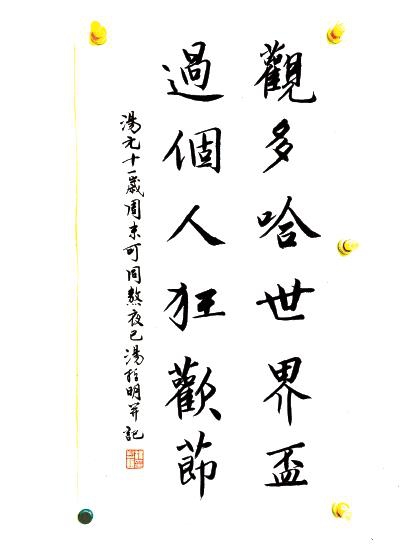 觀多哈世界盃
過個人狂歡節
湯元十一歲周末可同熬夜已湯哲明并記